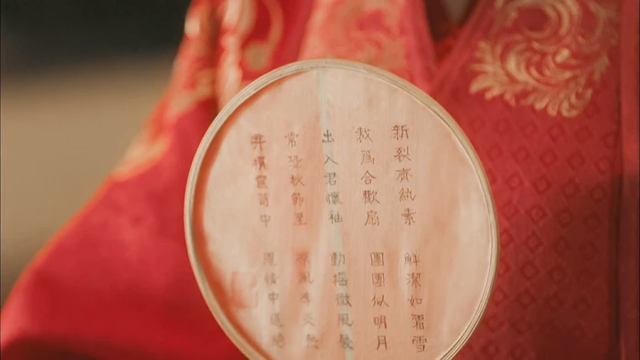 新裂齊紈素 鮮潔如霜雪
裁爲合歡扇 團團似明月
出入君懷袖 動搖微風發
常恐秋節至 涼風奪炎熱
弃捐篋笥中 恩情中道絕